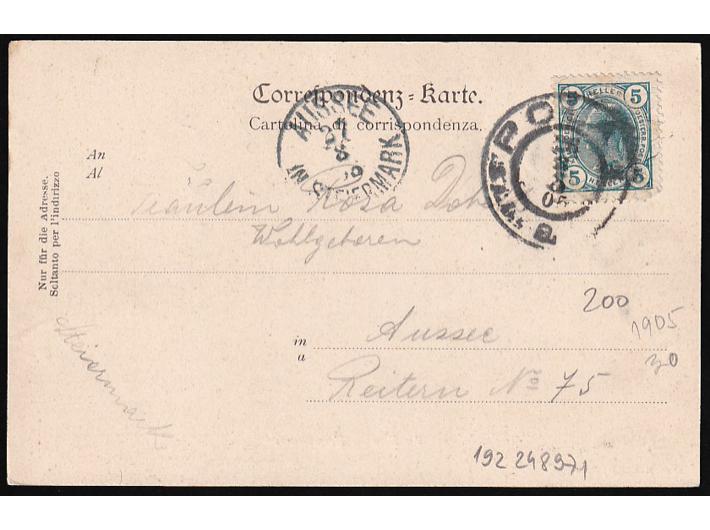 Correspondenz-Karte.
Cartolina di corrispondenza.
AUSSEE
IN STEIERMARK
5 HELLER 5
5 5
POLA
An
Al
Fräulein Rosa
Wohlgeboren
Nur für die Adresse.
Soltanto per l'indirizzo
in
a
Aussee
Reitern No 75
Steiermark
200
1905
30
192 248971